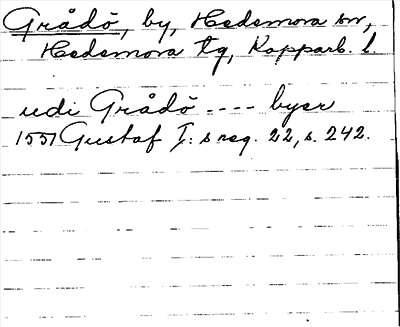 Grådö, by, Hedemora sn,
Hedemora tg, Kopparb. l
udi Grådö ---- byer
1551 Gustaf I: s reg. 22, s. 242.